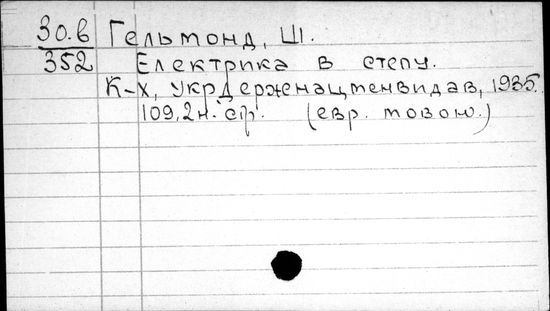 30.6 Гельмонд, Ш.
352 Електрика в степу.
К-х, Укрдержнацменвидав, 1935.
109, 2 н. ст. (евр. мовою.)